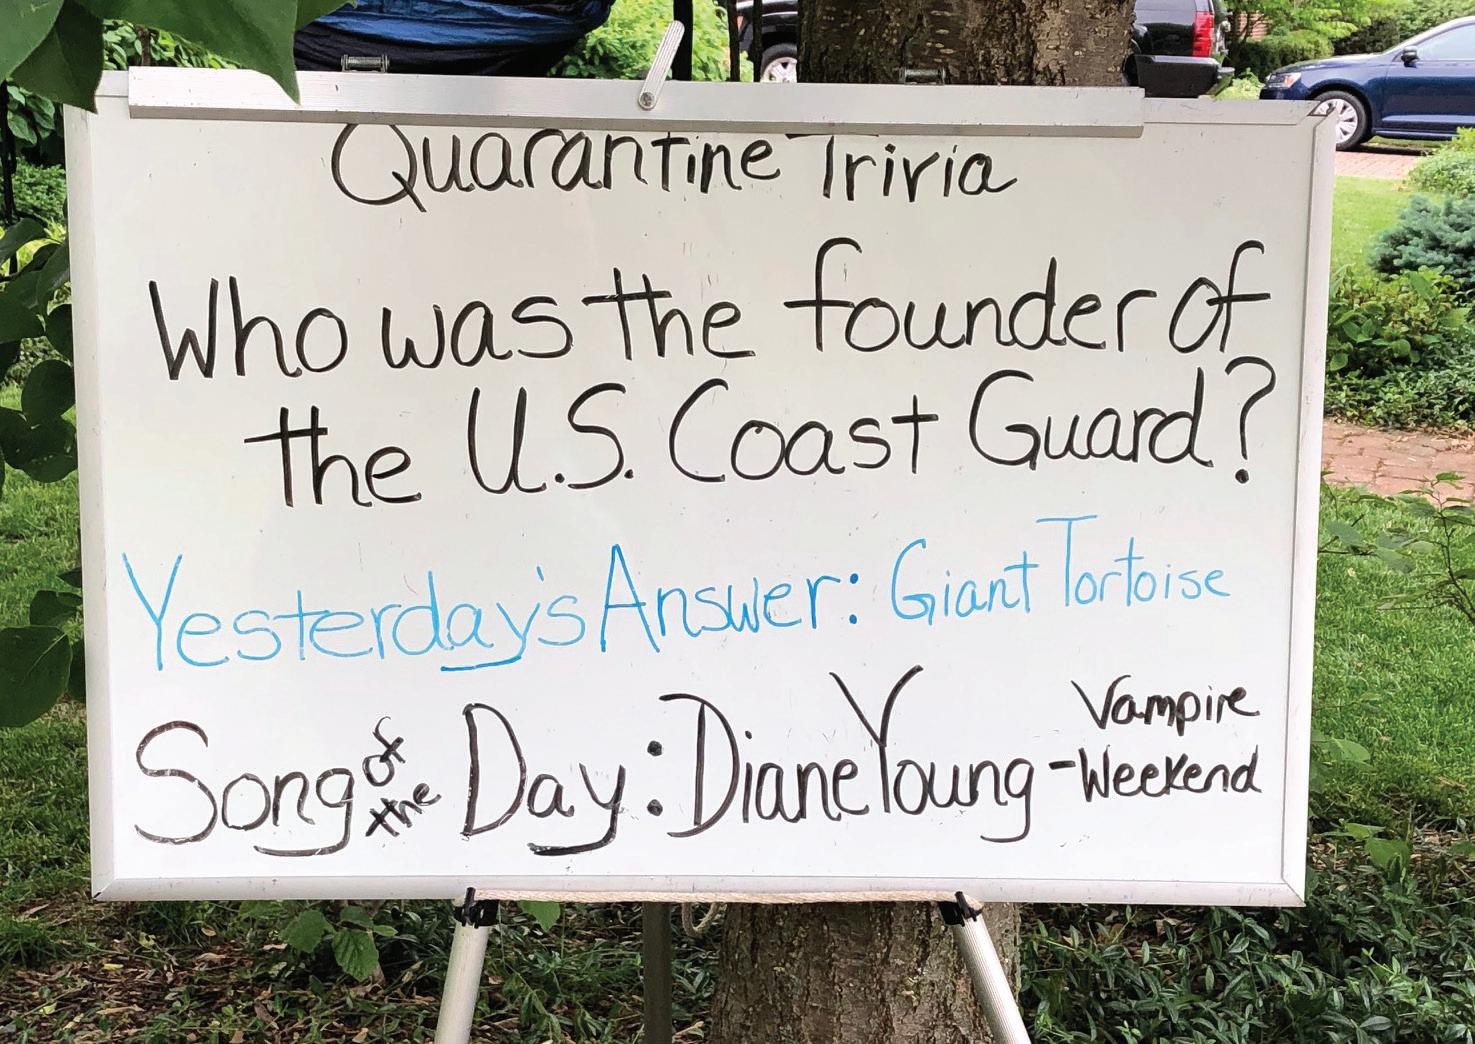 Quarantine Trivia
Who was the founder of
the U.S. Coast Guard?
Yesterday's Answer: Giant Tortoise
Song of the Day: Diane Young - Vampire
Weekend